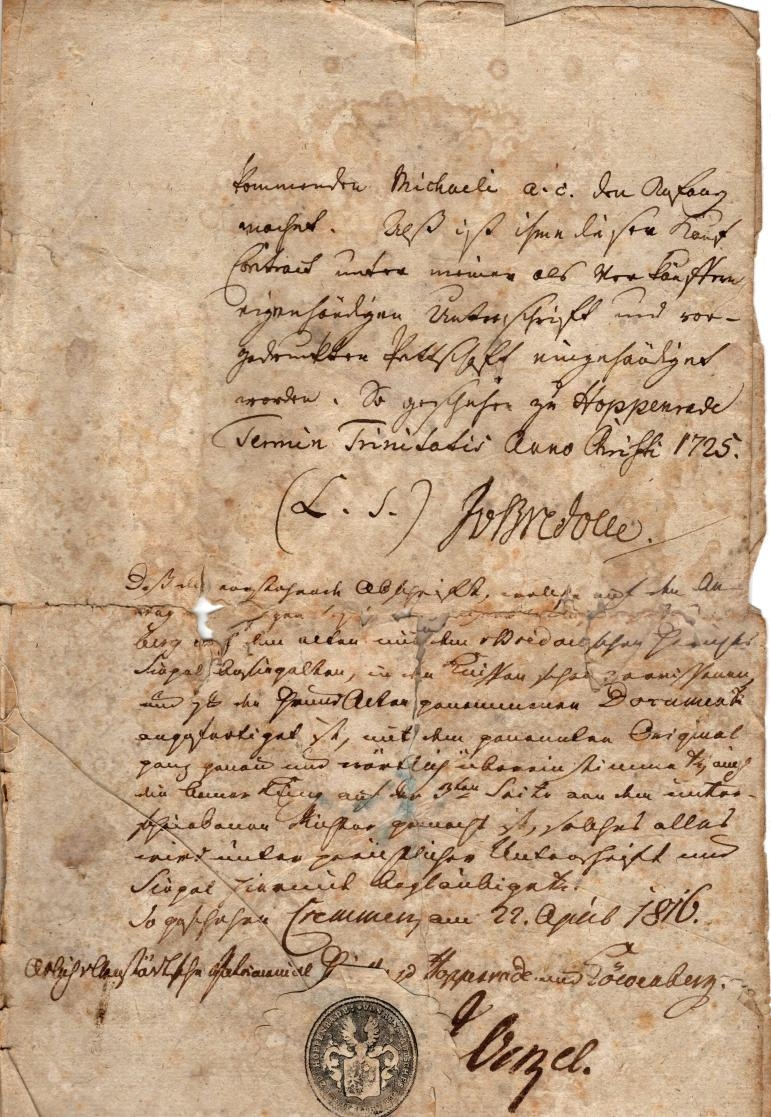 kommenden Michaeli a. c. den Anfang
machet. Alß ist ihme dieser Kauff
Contract unter meiner als Verkäuffern
eigenhändigen Unterschrifft und vor-
gedruckten Pettschafft eingehändiget
worden. So geschehen zu Hoppenrade
Termin Trinitatis Anno Christi 1725.
(L. S.) JvBredow.
Daß vorstehende Abschrifft, welche auf den An-
berg auf den alten mit dem vBredowschen Gerichts
Siegel besiegelten, in den zerrissenen,
und zu den Grund Acten genommenen Document
ausgefertiget ist, mit dem genannten Original
ganz genau und wörtlich übereinstimmet, auch
die Bemerkung auf der 3ten Seite von dem unter-
schriebenen Richter gemacht ist, solches alles
wird unter gerichtlicher Unterschrift und
Siegel hiermit beglaubiget.
So geschehen Cremmen am 22. April 1816.
Hoppenrade und Löwenberg.